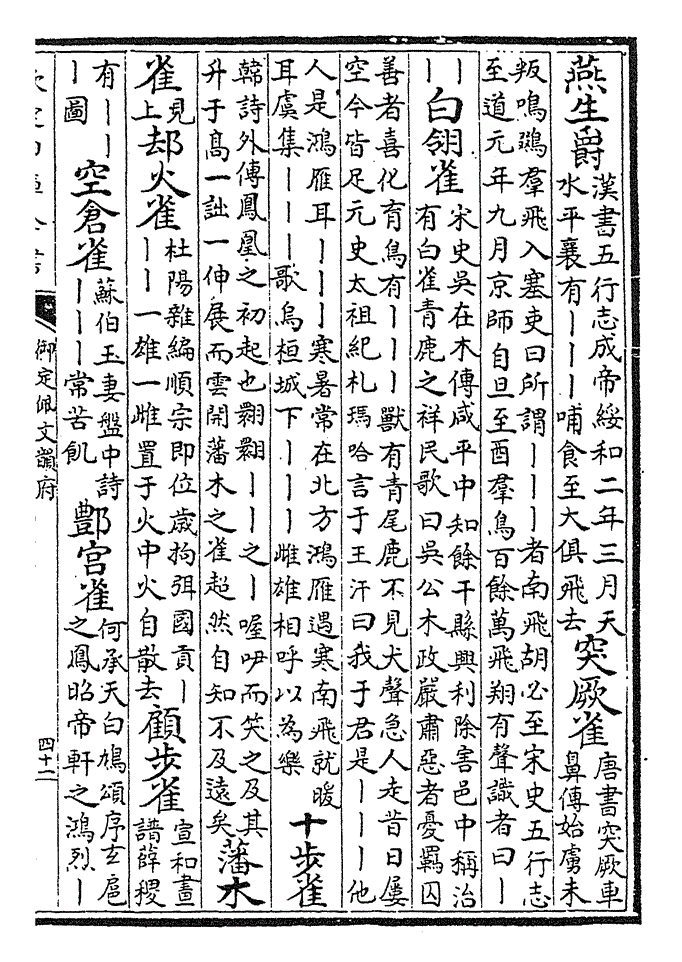 燕生爵
漢書五行志成帝綏和二年三月天
水平襄有丨丨丨哺食至大俱飛去
突厥雀
唐書突厥車
鼻傳始虜未
叛鳴鵽羣飛入塞吏曰所謂丨丨丨者南飛胡必至宋史五行志
至道元年九月京師自旦至酉羣鳥百餘萬飛翔有聲識者曰丨
丨丨
白翎雀
宋史吳在木傳咸平中知餘干縣興利除害邑中稱治
有白雀青鹿之祥民歌曰吳公木政嚴肅惡者憂羈囚
善者喜化育鳥有丨丨丨獸有青尾鹿不見犬聲急人走昔日屢
空今皆足元史太祖紀札瑪哈言于王汗曰我于君是丨丨丨他
人是鴻雁耳丨丨丨寒暑常在北方鴻雁遇寒南飛就暖
耳虞集丨丨丨歌烏桓城下丨丨丨雌雄相呼以為樂
十步雀
韓詩外傳鳳凰之初起也翾翾丨丨之丨喔咿而笑之及其
升于高一詘一伸展而雲開藩木之雀超然自知不及遠矣
藩木
雀
見
上
却火雀
杜陽雜編順宗即位歲拘弭國貢丨
丨丨一雄一雌置于火中火自散去
顧步雀
宣和畫
譜薛稷
有丨丨
丨圖
空倉雀
蘇伯玉妻盤中詩
丨丨丨常苦飢
酆宫雀
何承天白鳩頌序玄扈
之鳳昭帝軒之鴻烈丨
御定佩文韻府
四十二